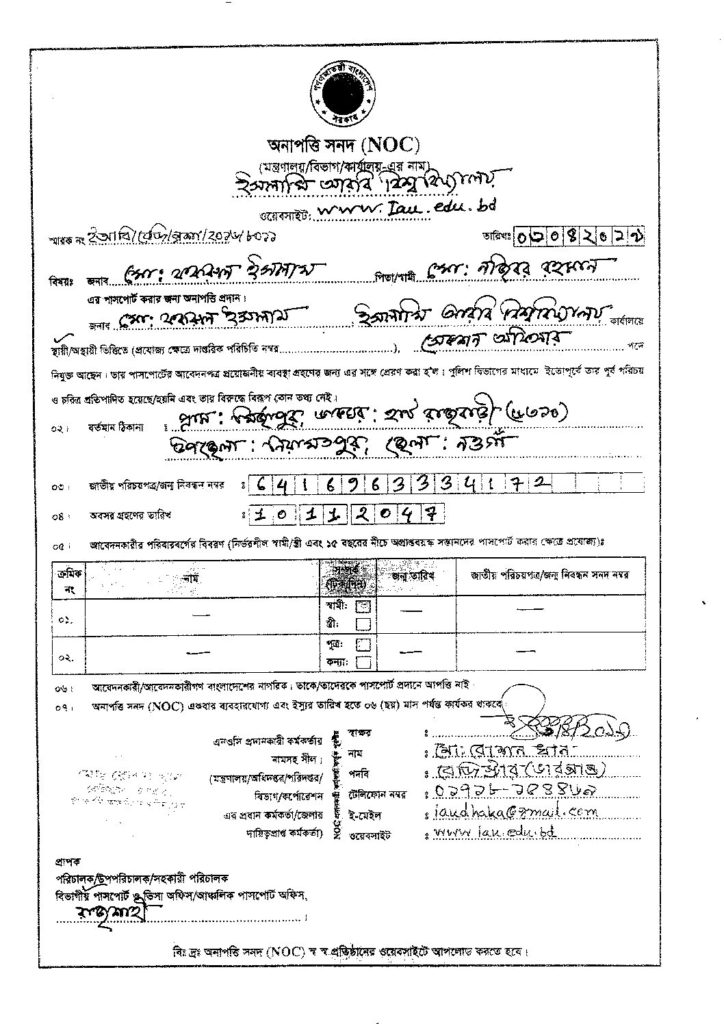 গণপ্রজাতন্ত্রী বাংলাদেশ
সরকার
অনাপত্তি সনদ (NOC)
(মন্ত্রণালয়/বিভাগ/কার্যালয়-এর নাম)
ইসলামি আরবি বিশ্ববিদ্যালয়
ওয়েবসাইট: www.Iau.edu.bd
স্মারক নং ইআবি/রেজি/প্রশা/ তারিখঃ
বিষয়ঃ জনাব মো: ইসলাম পিতা/স্বামী মো: রহমান
এর পাসপোর্ট করার জন্য অনাপত্তি প্রদান।
জনাব মো: ইসলাম , ইসলামি আরবি বিশ্ববিদ্যালয় কার্যালয়ে
স্থায়ী/অস্থায়ী ভিত্তিতে (প্রযোজ্য ক্ষেত্রে দাপ্তরিক পরিচিতি নম্বর), সেকশন অফিসার পদে
নিযুক্ত আছেন। তার পাসপোর্টের আবেদনপত্র প্রয়োজনীয় ব্যবস্থা গ্রহণের জন্য এর সঙ্গে প্রেরণ করা হ'ল। পুলিশ বিভাগের মাধ্যমে ইতোপূর্বে তার পূর্ব পরিচয়
ও চরিত্র প্রতিপাদিত হয়েছে/হয়নি এবং তার বিরুদ্ধে বিরূপ কোন তথ্য নেই।
০২। বর্তমান ঠিকানা : গ্রাম: মির্জাপুর, ডাকঘর: রাজবাড়ী
উপজেলা: নিয়ামতপুর, জেলা: নওগাঁ
০৩। জাতীয় পরিচয়পত্র/জন্ম নিবন্ধন নম্বর : 6416963334172
০৪। অবসর গ্রহণের তারিখ : 10112047
০৫। আবেদনকারীর পরিবারবর্গের বিবরণ (নির্ভরশীল স্বামী/স্ত্রী এবং ১৫ বছরের নীচে অপ্রাপ্তবয়স্ক সন্তানদের পাসপোর্ট করার ক্ষেত্রে প্রযোজ্য)ঃ
ক্রমিক নং নাম সম্পর্ক (টিক দিন) জন্ম তারিখ জাতীয় পরিচয়পত্র/জন্ম নিবন্ধন সনদ নম্বর
০১. — স্বামী: — —
স্ত্রী:
০২. — পুত্র: — —
কন্যা:
০৬। আবেদনকারী/আবেদনকারীগণ বাংলাদেশের নাগরিক। তাকে/তাদেরকে পাসপোর্ট প্রদানে আপত্তি নাই
০৭। অনাপত্তি সনদ (NOC) একবার ব্যবহারযোগ্য এবং ইস্যুর তারিখ হতে ০৬ (ছয়) মাস পর্যন্ত কার্যকর থাকবে
এনওসি প্রদানকারী কর্মকর্তার
নামসহ সীল।
(মন্ত্রণালয়/অধিদপ্তর/পরিদপ্তর/
বিভাগ/কর্পোরেশন
এর প্রধান কর্মকর্তা/জেলার
দায়িত্বপ্রাপ্ত কর্মকর্তা)
স্বাক্ষর :
নাম : মো: খান
পদবি : রেজিস্ট্রার (ভারপ্রাপ্ত)
টেলিফোন নম্বর :
ই-মেইল : iaudhaka@gmail.com
ওয়েবসাইট : www.iau.edu.bd
প্রাপক
পরিচালক/উপপরিচালক/সহকারী পরিচালক
বিভাগীয় পাসপোর্ট ও ভিসা অফিস/আঞ্চলিক পাসপোর্ট অফিস,
রাজশাহী।
বিঃ দ্রঃ অনাপত্তি সনদ (NOC) স্ব স্ব প্রতিষ্ঠানের ওয়েবসাইটে আপলোড করতে হবে।